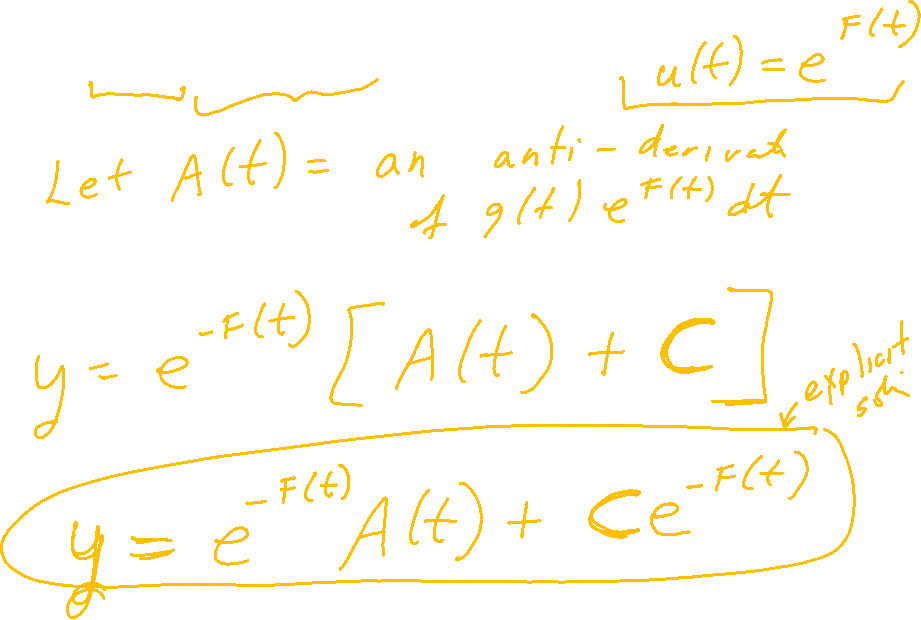 u(t) = e^{F(t)}
Let A(t) = an anti-derivative
of g(t) e^{F(t)} dt
y = e^{-F(t)} [ A(t) + C ]
explicit
soln
y = e^{-F(t)} A(t) + C e^{-F(t)}